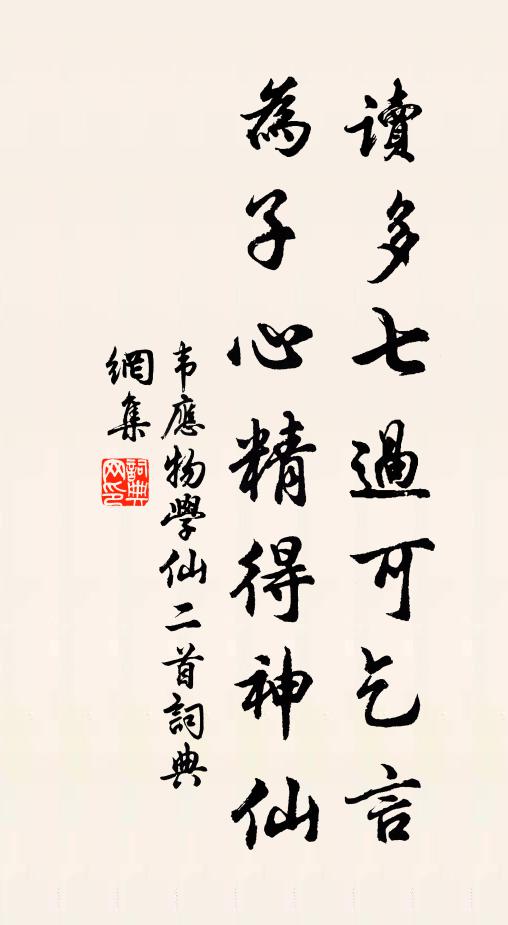 讀多七過可乞言
為子心精得神仙
韦應物學仙二首詞典
網集
詞典
网印